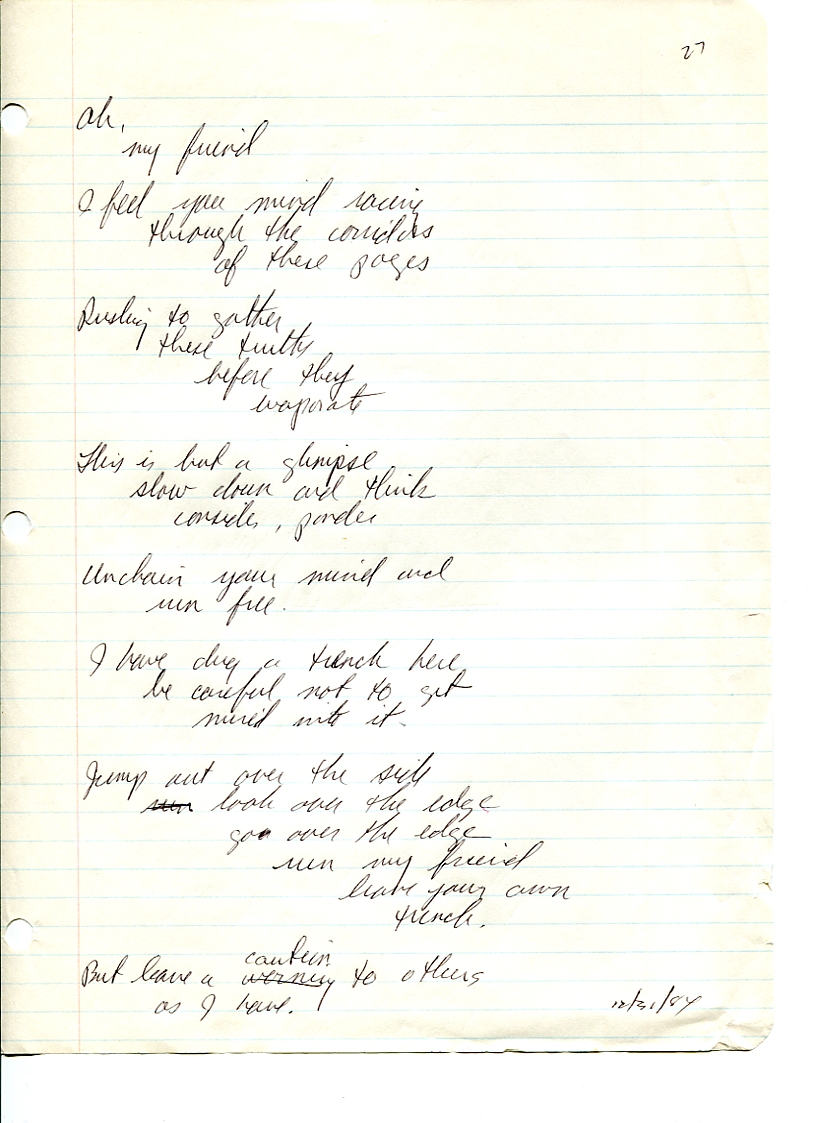 27
Oh,
my friend
I feel your mind racing
through the corridors
of these pages
Rushing to gather
these truths
before they
evaporate
This is but a glimpse
slow down and think
consider, ponder
Unchain your mind and
run free.
I have dug a trench here
be careful not to get
mired into it.
Jump out over the side
run look over the edge
go over the edge
run my friend
leave your own
trench.
caution
But leave a warning to others
as I have.
12/31/84